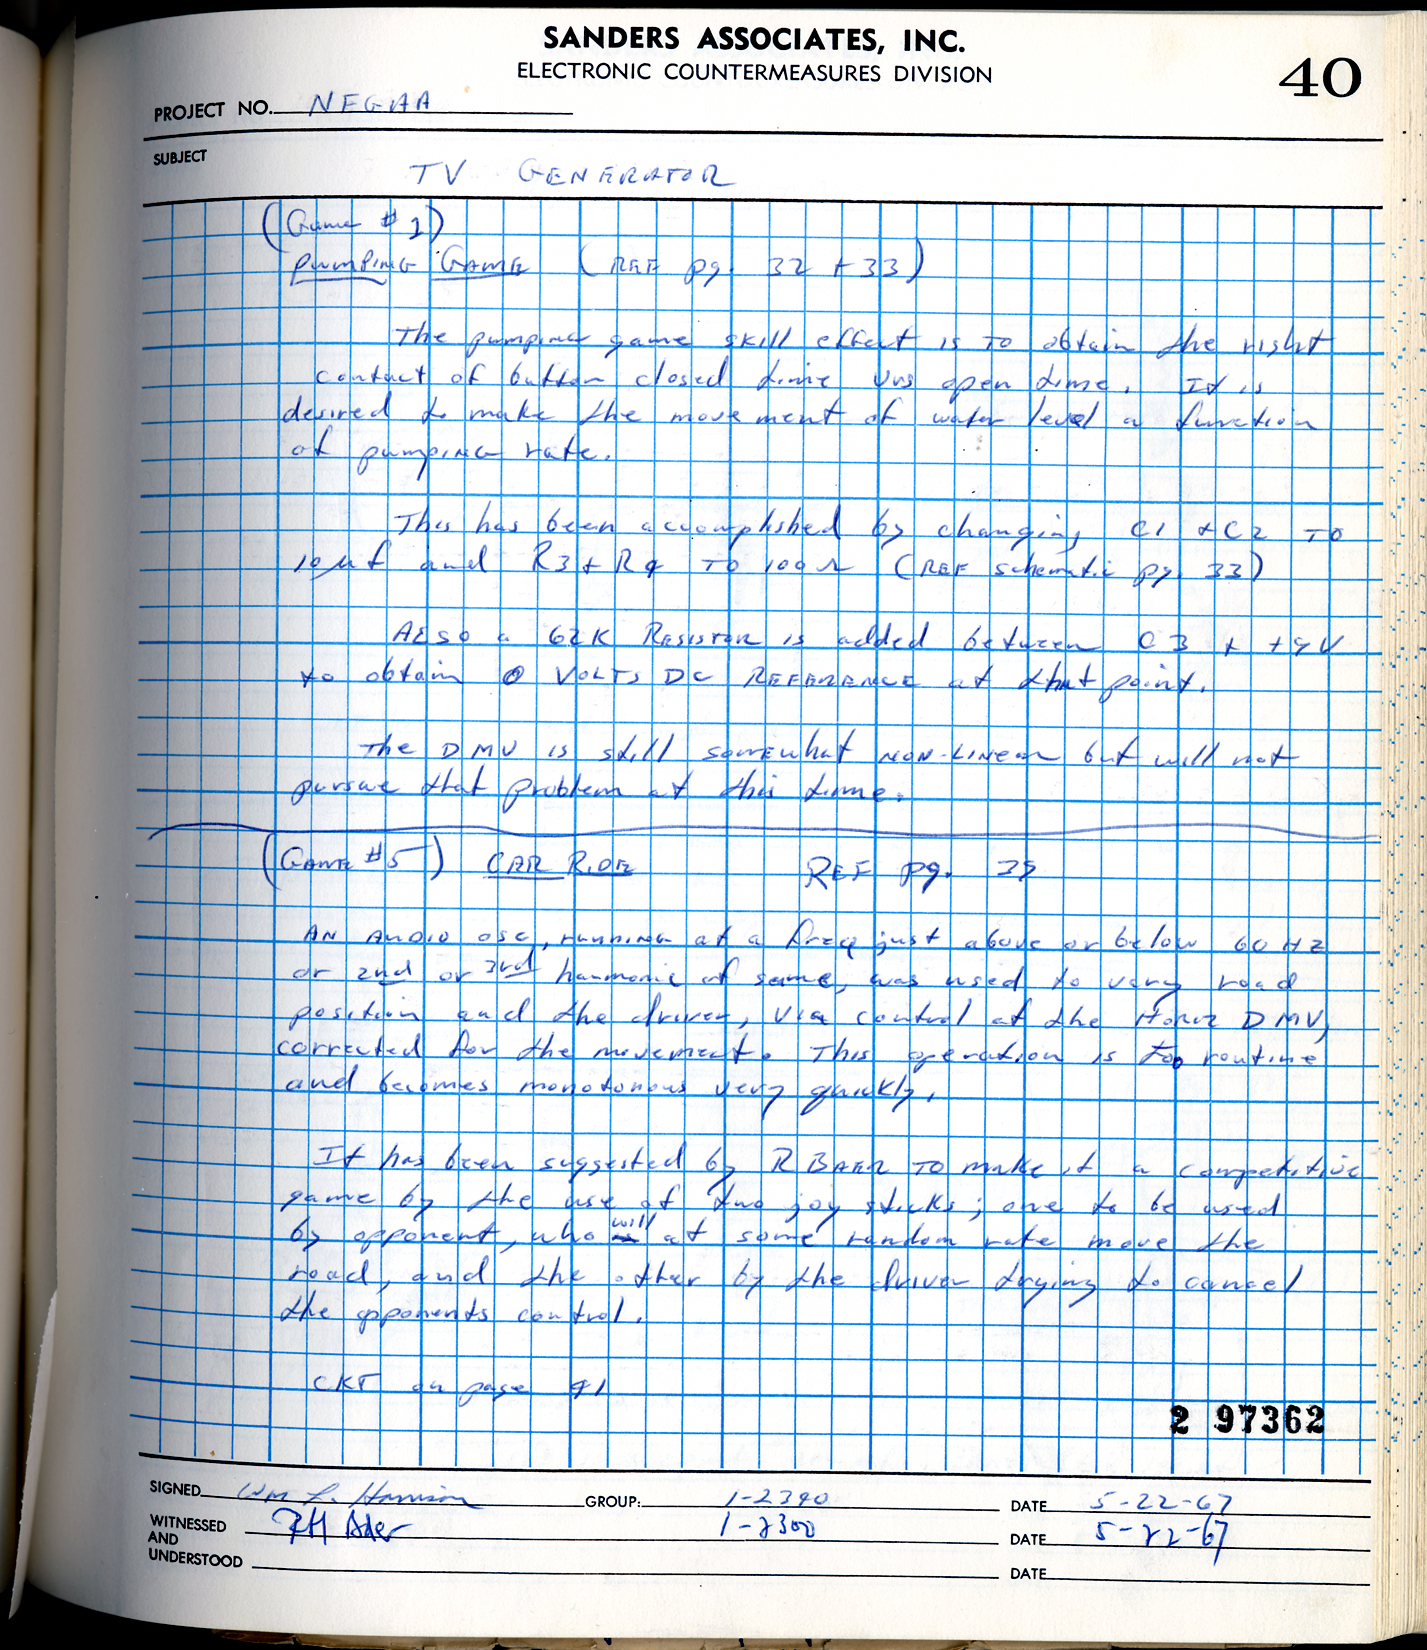 SANDERS ASSOCIATES, INC.
ELECTRONIC COUNTERMEASURES DIVISION
40
PROJECT NO. NEGAA
SUBJECT
TV GENERATOR
(Game #1)
PUMPING GAME (REF pg. 32 + 33)
The pumping game skill effect is to obtain the right
contact of button closed time vrs open time. It is
desired to make the movement of water level a function
of pumping rate.
This has been accomplished by changing C1 + C2 TO
10 µf and R3 + R4 TO 100 Ω (REF schematic pg. 33)
Also a 62K Resistor is added between C3 + +9V
to obtain 0 VOLTS DC REFERENCE at that point.
The DMV is still somewhat NON-LINEAR but will not
pursue that problem at this time.
(GAME #5) CAR RIDE REF pg. 38
AN AUDIO OSC, running at a freq just above or below 60 HZ
or 2nd or 3rd harmonic of same, was used to vary road
position and the driver, via control of the Horiz DMV,
corrected for the movement. This operation is too routine
and becomes monotonous very quickly.
It has been suggested by R BAER TO make it a competitive
game by the use of two joy sticks; one to be used
by opponent, who will at some random rate move the
road, and the other by the driver trying to cancel
the opponents control.
CKT on page 41
2 97362
SIGNED Wm L. Harrison GROUP: 1-2390 DATE 5-22-67
WITNESSED 1-2300 DATE 5-22-67
AND
UNDERSTOOD DATE